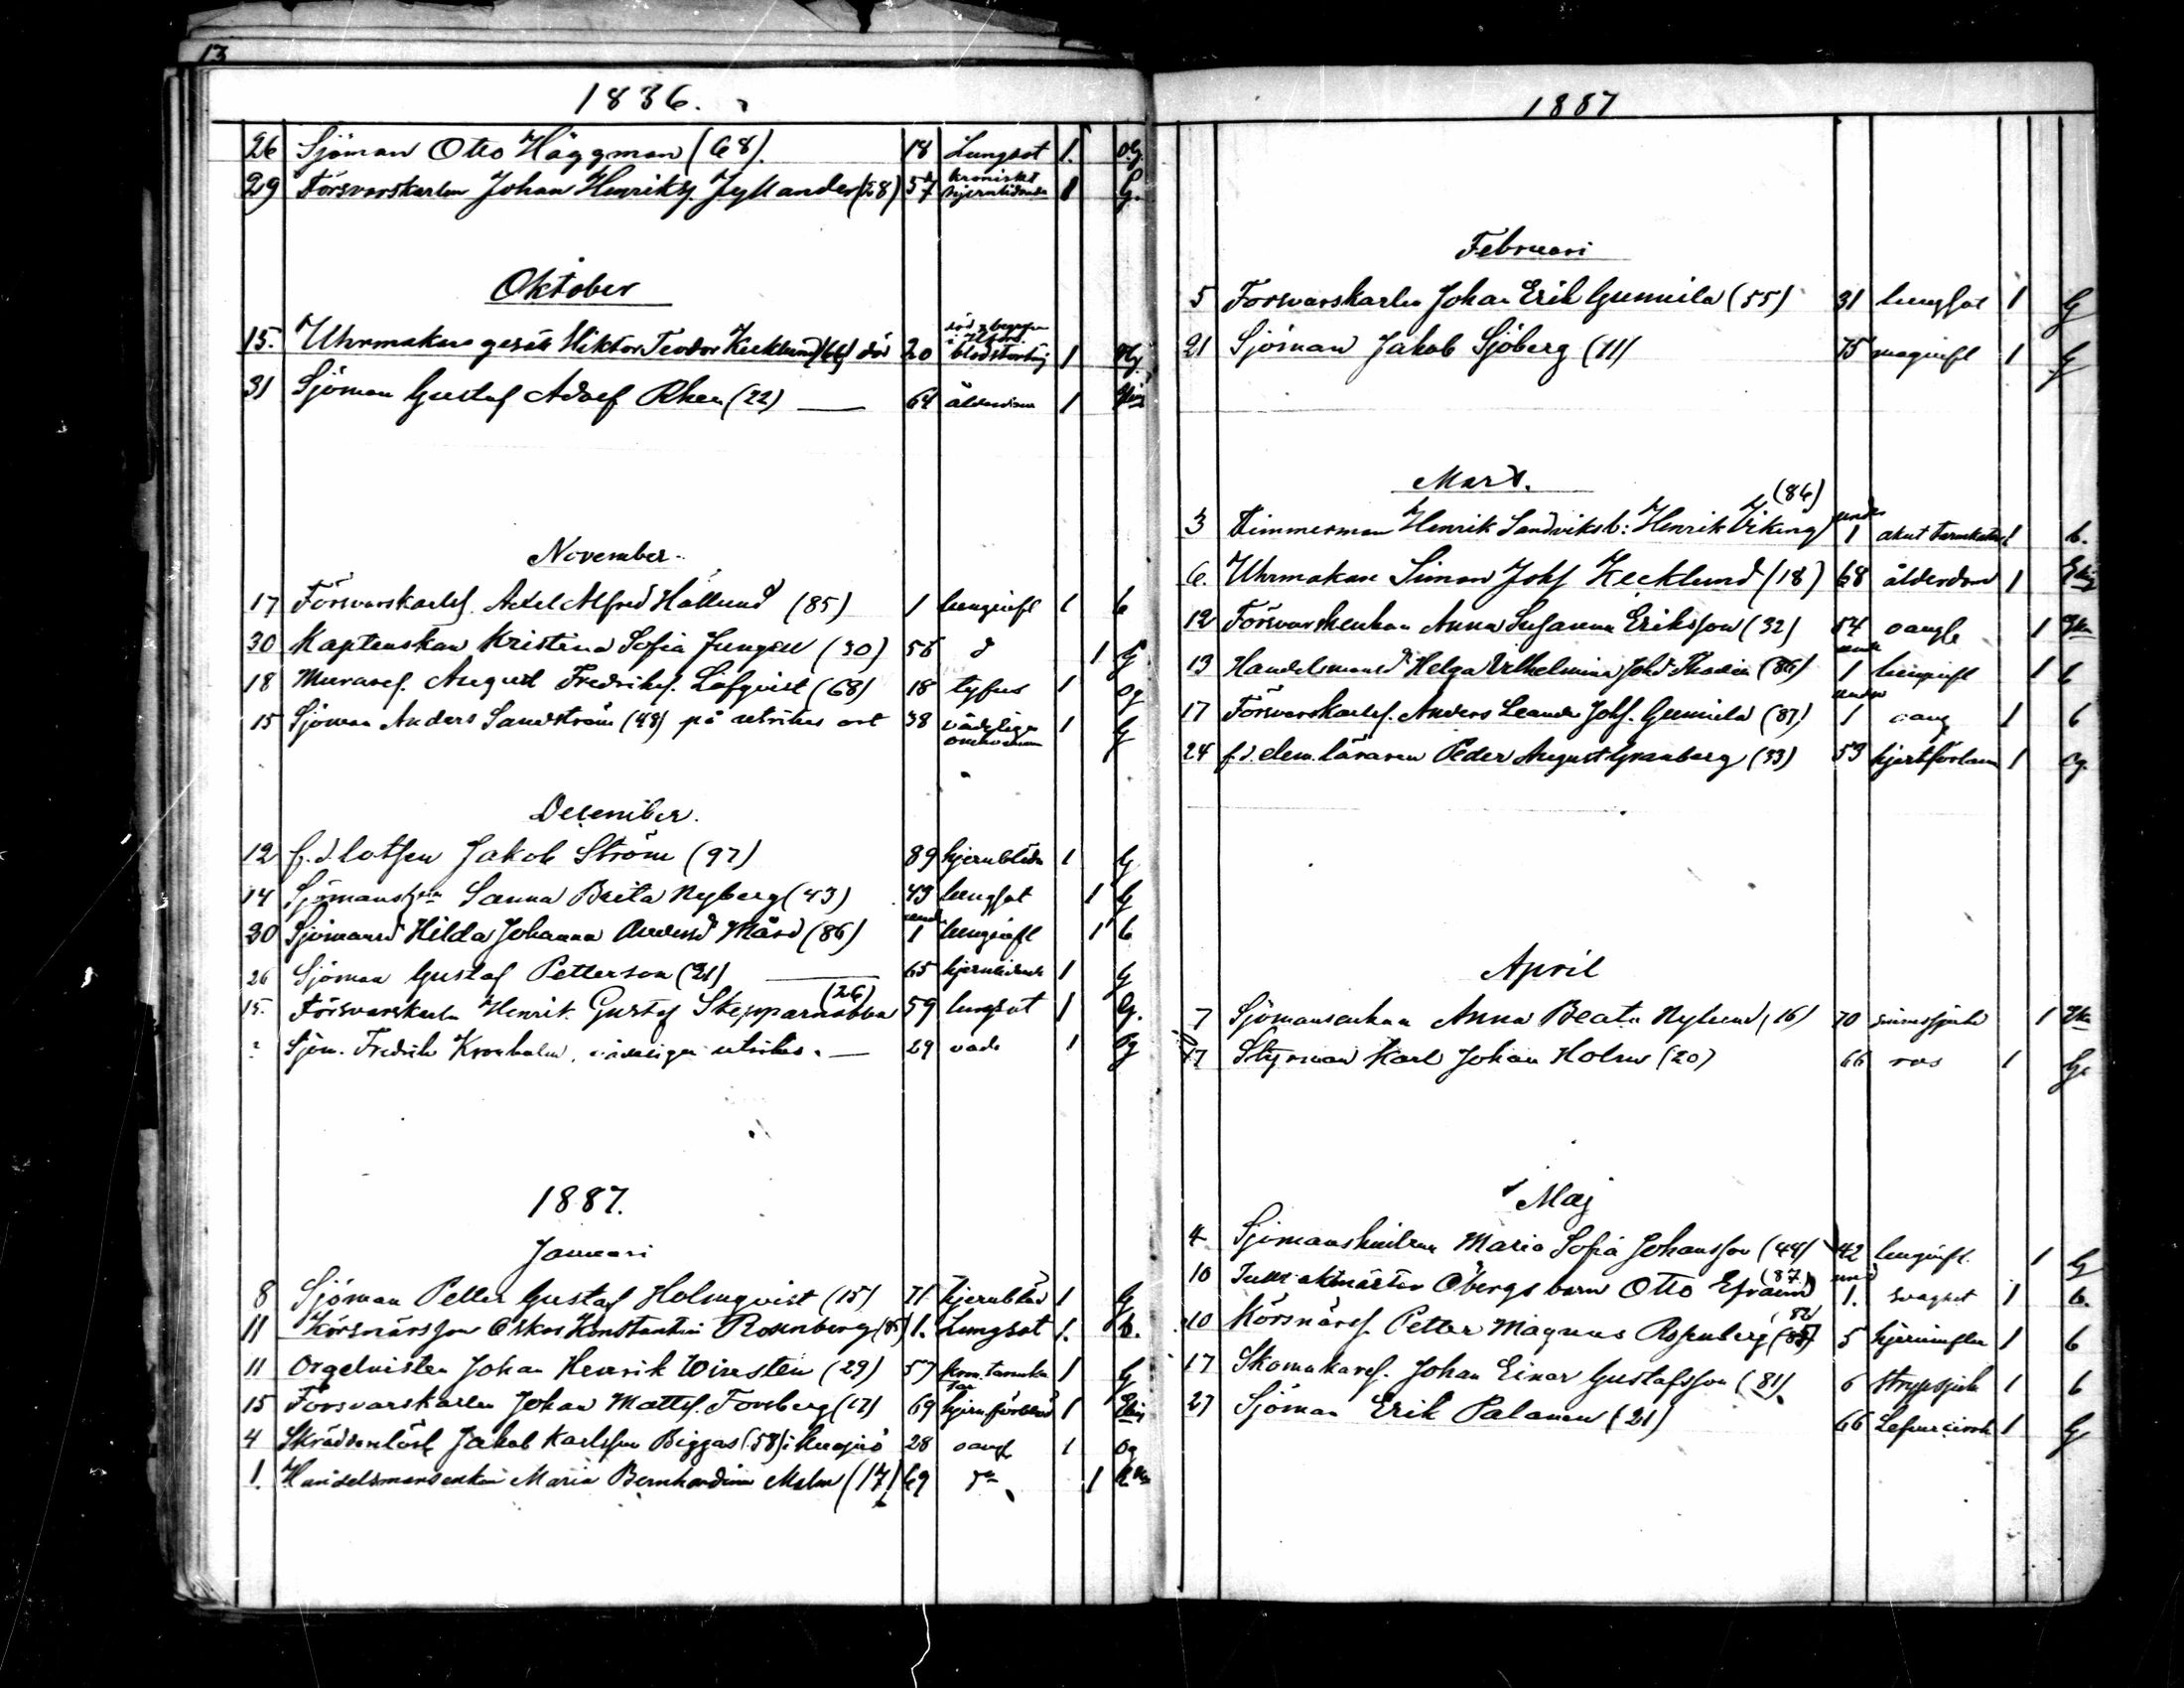 13
1886.
26 Sjöman Otto Häggman (68). 18 Lungsot 1. Og.
29 Försvarskarlen Johan Henriks. Jyllander (28) 57 kroniskt hjernlidande 1 G.
Oktober
15. Uhrmakaregesäll Viktor Teodor Kecklund (66) död 20 blodstörtn 1 Og.
31 Sjöman Gustaf Adolf Rhen (22) — 64 ålderdom 1
November.
17 Försvarskarlss. Axel Alfred Hällund (85) 1 lunginfl 1 b
30 Kaptenskan Kristina Sofia Jungell (30) 56 d 1 G
18 Murares. August Fredriks. Löfqvist (68) 18 tyfus 1 Og
15 Sjöman Anders Sandström (48) på utrikes ort 38 vådeligen omkommen 1 G
December.
12 f.d. lotsen Jakob Ström (97) 89 hjernblödn 1 G
14 Sjömansh Sanna Brita Nyberg (43) 43 lungsot 1 G
30 Sjömansd Hilda Johanna Andersd Mård (86) und. 1 lunginfl 1 b
26 Sjöman Gustaf Petterson (21) — 65 hjernlidande 1 G
(26)
15. Försvarskarlen Henrik Gustaf Skepparnabba 59 lungsot 1 G.
? Sjöm. Fredrik Kronholm, vådeligen utrikes. — 29 våde 1 Og
1887.
Januari
8 Sjöman Petter Gustaf Holmqvist (15) 71 hjernblöd 1 G
11 Körsnärsson Oskar Konstantin Rosenberg (85) 1. Lungsot 1. b.
11 Orgelnisten Johan Henrik Wiresten (29) 57 kron. tarmka tar 1 G
15 Försvarskarlen Johan Matts. Forsberg (17) 69 hjernförblöd 1
4 Skräddarlärl Jakob Karlsson Biggas (58) i 28 oangf 1 Og
1. Handelsmansenkan Maria Bernhardina Malm (17) 69 da 1
1887
Februari
5 Försvarskarlen Johan Erik Gunnila (55) 31 lungsot 1 G
21 Sjöman Jakob Sjöberg (11) 75 maginfl 1 G
Mars.
(86)
3 Timmerman Henrik Sandviks b: Henrik Viking under 1 akut tarmkatarr 1 b.
6. Uhrmakare Simon Johs Kecklund (18) 68 ålderdom 1
12 Försvarsenkan Anna Susanna Eriksson (32) 54 oangf 1
13 Handelsmansd Helga Vilhelmina Johd Thodén (86) under 1 lunginfl 1 b
17 Försvarskarlss. Anders Leander Johs. Gunnila (87) under 1 oang 1 b
24 f.d. elem. läraren Peder August Granberg (33) 53 hjertförlam 1 Og.
April
7 Sjömansenkan Anna Beata Nylund (16) 70 sinnessjukd 1
17 Styrman Karl Johan Holm (20) 66 ros 1 G.
Maj
4 Sjömanshustrun Maria Sofia Johansson (44) 42 lunginfl. 1 G
(87)
10 Öbergs barn Otto Efraim und 1. svaghet 1 b.
82
10 Körsnärss. Petter Magnus Rosenberg 5 hjerninflam 1 b
17 Skomakares. Johan Einar Gustafsson (81). 6 strypsjuka 1 b
27 Sjöman Erik Palanen (21) 66 Lefvercirrh 1 G